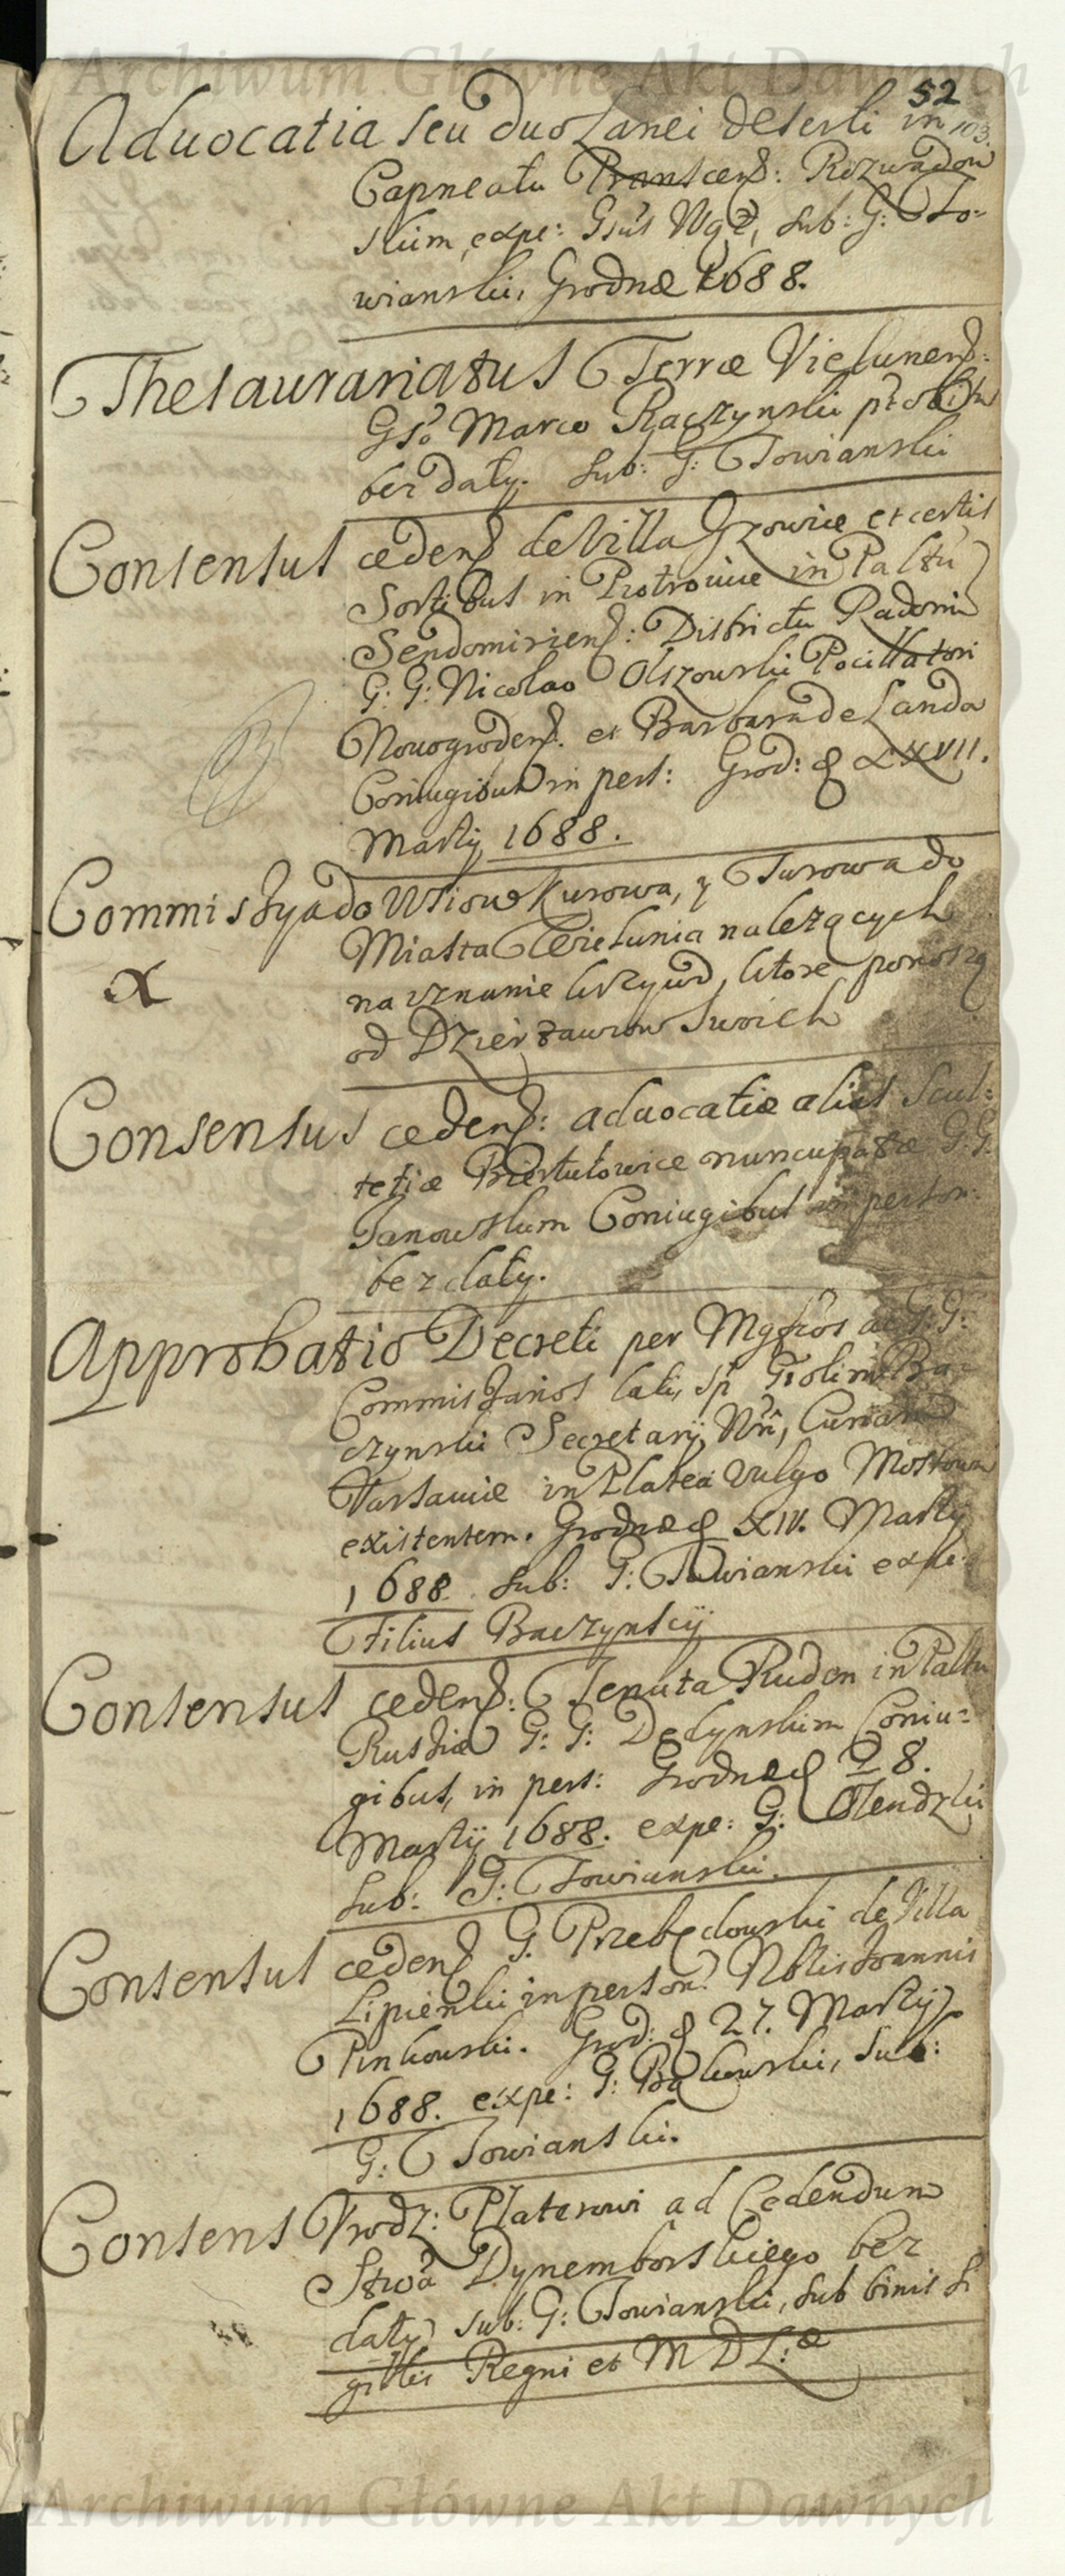 Archiwum Główne Akt Dawnych
52
103.
Aduocatia seu duo Lanei deserti in
Capneatu Pranscen: Rozwadow
skim, expe: Gsus Wgę, sub: G: To=
wianski, Grodnæ 1688.
Thesaurariatus Terræ Vielunen:
Gso Marco Raczynski pt obitu
bez daty. sub: G: Towianski
Consensus ceden de Villa Gzowice et certis
Sortibus in Piotrowice in Paltu
Sendomirien: Districtu Radomi
G: G: Nicolao Olszowski Pocillatori
Nouogroden. et Barbara de Landa
Coniugibus in pers: Grod: d XXVII.
Martij 1688.
Commissya do Wsiow Kurowa, y Turowa do
Miasta Wielunia nalezących
na vznanie krzywd, ktore ponoszą
od Dzierzawcow swoich
Consensus ceden: aduocatiæ alias Scul=
tetiæ Biertułowice nuncupatæ G: G:
Janowskim Coniugibus in person:
bez daty.
Approbatio Decreti per Mgficos ac G: G:
Commissarios lati, sp Giolimo Ba=
czynski Secretarij Nri, Curiam
Varsauiæ in Platea vulgo Mostowa
existentem. Grodnæ d XIV. Martij
1688. sub: G: Towianski expe:
Filius Baczynscij
Consensus ceden: Tenuta Rudon in Paltu
Russiæ G: G: Dedynskim Coniu=
gibus, in pers: Grodnæ d 28.
Martij 1688. expe: G: Mendzki
sub: G: Towianski.
Consensus ceden G. Przebędowski de Villa
Lipienki in person: Nblis Joannis
Pinkowski. Grod: d 27. Martij
1688. expe: G: Bąkowski, sub:
G: Towianski.
Consens Vrodz: Platerowi ad Cedendum
Stwa Dynemborskiego bez
daty sub: G: Towianski, sub binis Si
gillis Regni et M D L: æ
Archiwum Główne Akt Dawnych